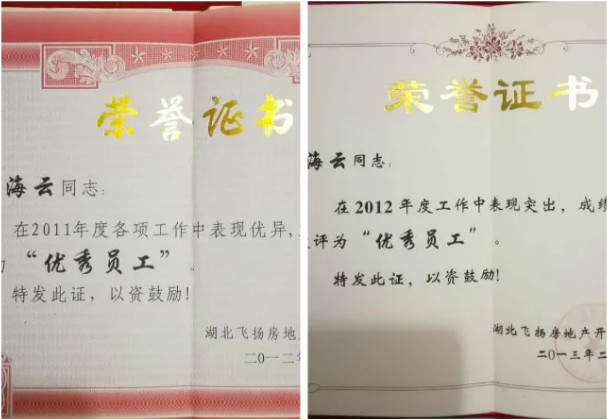 荣誉证书
海云同志:
在2011年度各项工作中表现优异,
“优秀员工”。
特发此证，以资鼓励!
湖北飞扬房地
二〇一二年
荣誉证书
海云同志:
在 2012 年度工作中表现突出，成绩
评为“优秀员工”。
特发此证，以资鼓励!
湖北飞扬房地产开
二〇一三年二